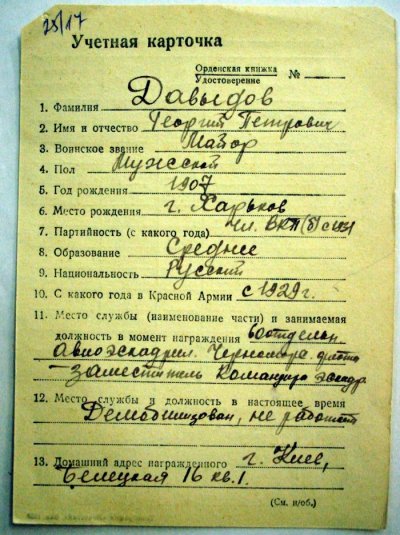 25/17
Учетная карточка
Орденская книжка
Удостоверение №
1. Фамилия Давыдов
2. Имя и отчество Георгий Петрович
3. Воинское звание Майор
4. Пол Мужской
5. Год рождения 1907
6. Место рождения г. Харьков
7. Партийность (с какого года) Чл. ВКП(б) с
8. Образование Среднее
9. Национальность Русский
10. С какого года в Красной Армии с 1929 г.
11. Место службы (наименование части) и занимаемая
должность в момент награждения 60 отдельн.
Авиоэскадрил. Черноморя. флота
– Заместитель Командира эскадр.
12. Место службы и должность в настоящее время
Демобилизован, не работает
13. Домашний адрес награжденного г. Киев,
16 кв. 1.
(См. н/об.)